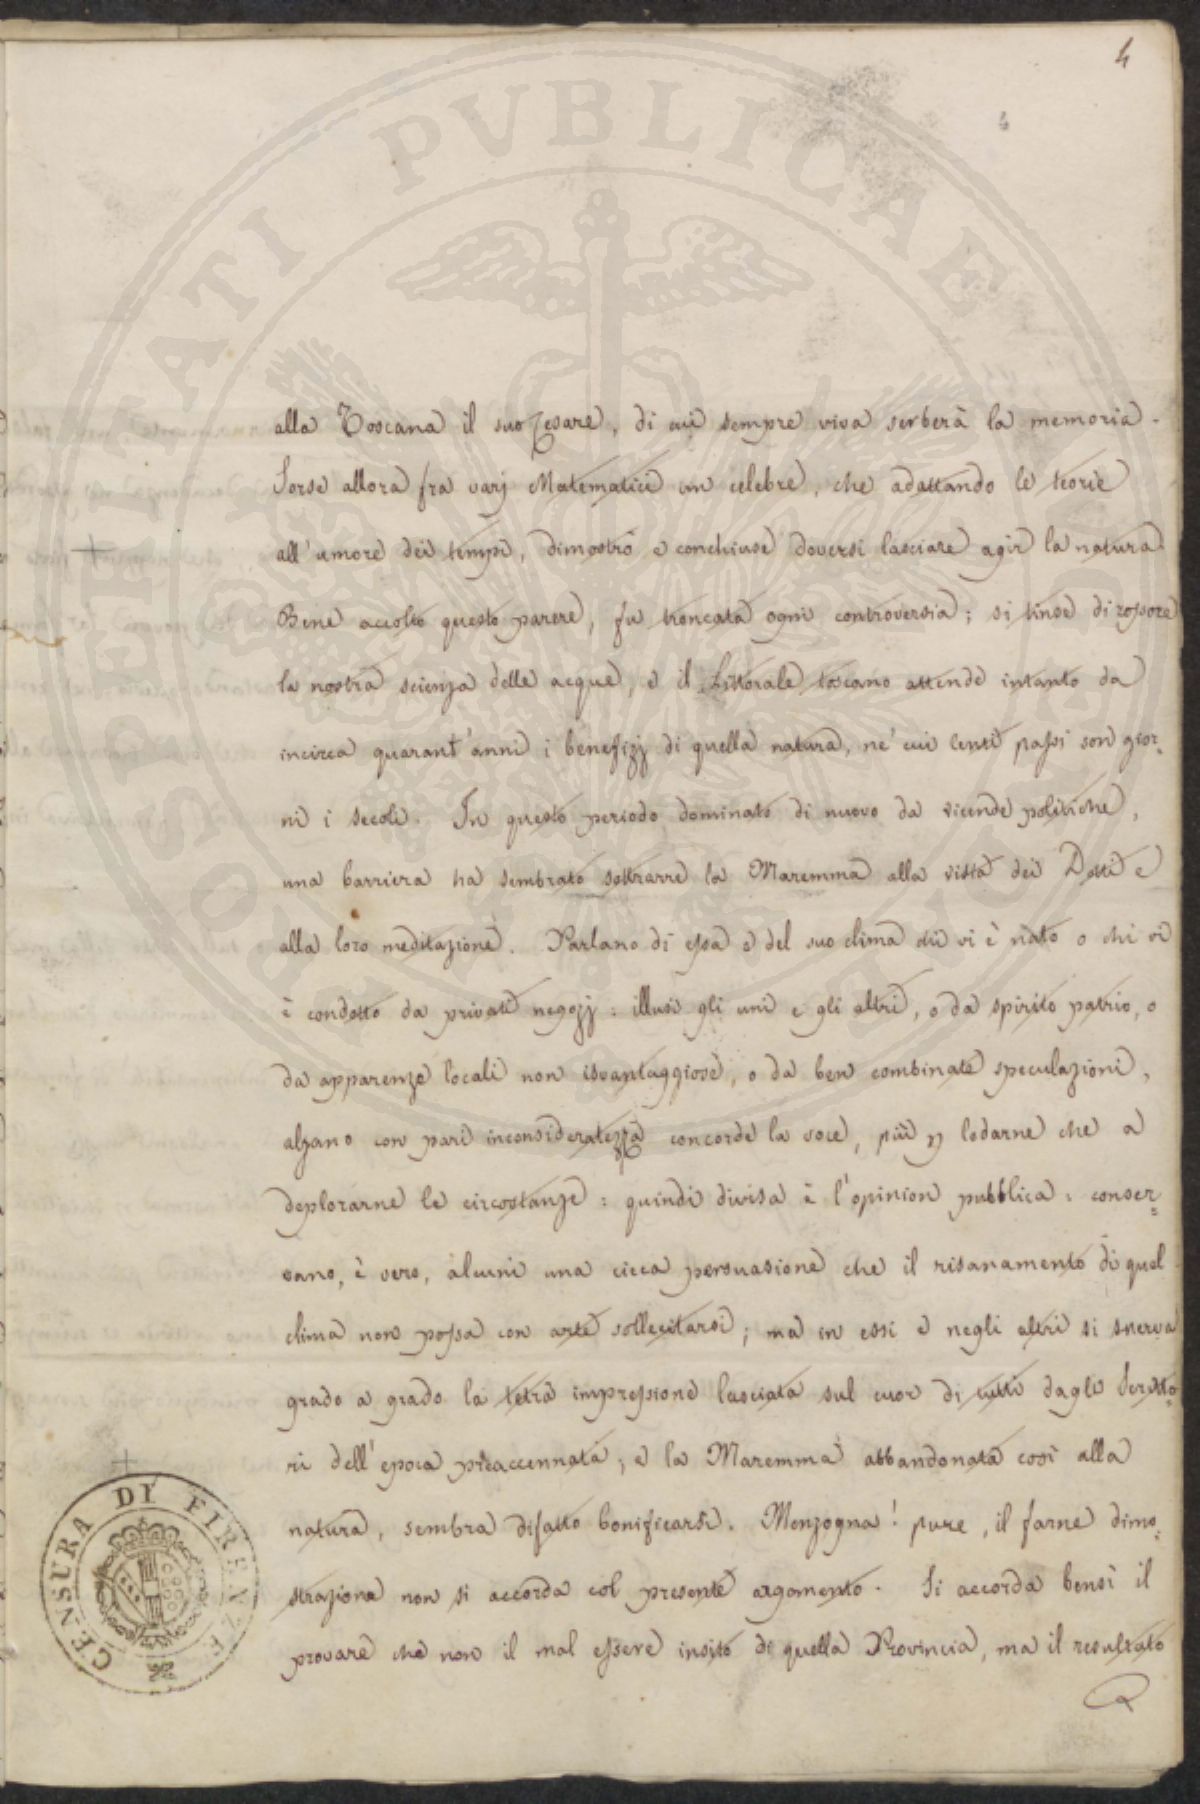 4
4
PROSPERITATI PUBLICAE
alla Toscana il suo Cesare, di cui sempre viva serberà la memoria.
Sorse allora fra varj Matematici un celebre, che adattando le teorie
all'umore dei tempi, dimostrò e conchiuse doversi lasciare agir la natura
Bene accolto questo parere, fu troncata ogni controversia; si tinse di rossore
la nostra scienza delle acque, e il Littorale toscano attende intanto da
incirca quarant'anni i benefizj di quella natura, ne' cui lenti passi son gior=
ni i secoli. In questo periodo dominato di nuovo da vicende politiche,
una barriera ha sembrato sottrarre la Maremma alla vista dei Dotti e
alla loro meditazione. Parlano di essa e del suo clima chi vi è nato o chi vi
è condotto da privati negozj: illusi gli uni e gli altri, o da spirito patrio, o
da apparenze locali non isvantaggiose, o da ben combinate speculazioni,
alzano con pari inconsideratezza concorde la voce, più p lodarne che a
deplorarne le circostanze: quindi divisa è l'opinion pubblica: conser=
vano, è vero, alcuni una cieca persuasione che il risanamento di quel
clima non possa con arte sollecitarsi; ma in essi e negli altri si snerva
grado a grado la tetra impressione lasciata sul cuor di tutti dagli Scritto=
ri dell'epoca preaccennata; e la Maremma abbandonata così alla
natura, sembra difatto bonificarsi. Menzogna! pure, il farne dimo=
strazione non si accorda col presente argomento. Si accorda bensì il
provare che non il mal essere insito di quella Provincia, ma il resultato
CENSURA DI FIRENZE